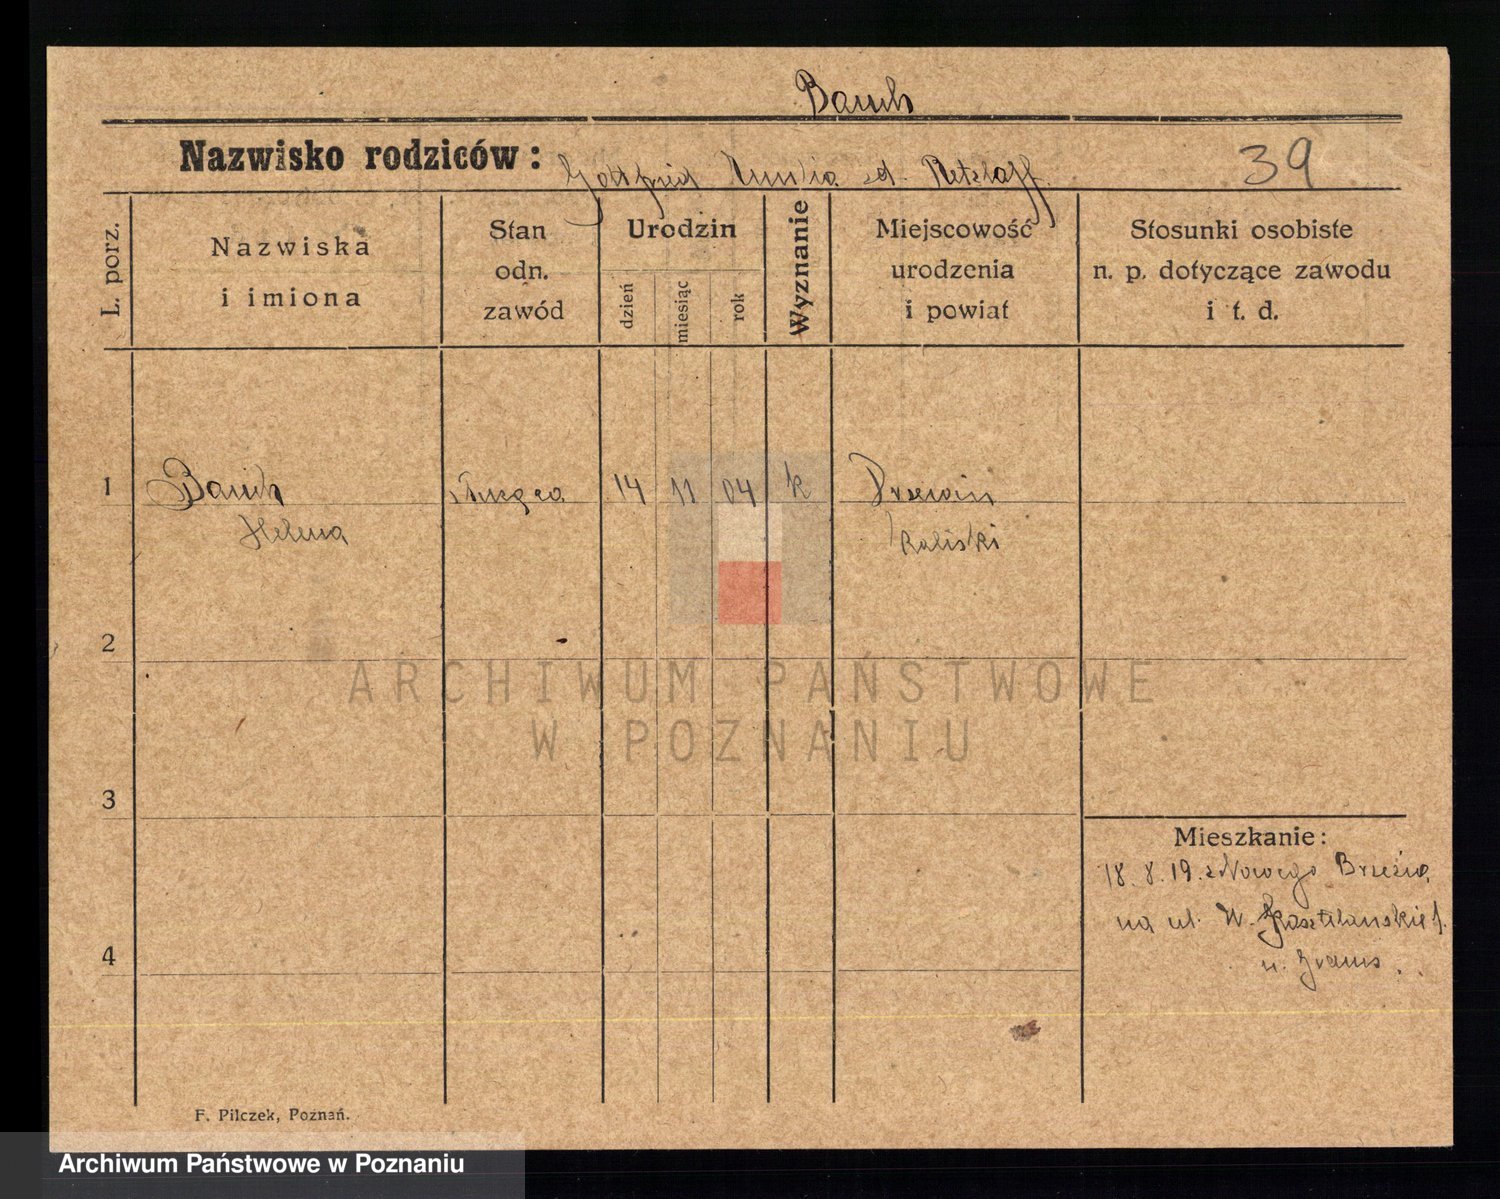 Banich
Nazwisko rodziców: Gottfried Amalia zd. Retzlaff
39
L. porz.
Nazwiska
i imiona
Stan
odn.
zawód
Urodzin
dzień
miesiąc
rok
Wyznanie
Miejscowość
urodzenia
i powiat
Stosunki osobiste
n. p. dotyczące zawodu
i t. d.
1 służąca 14 11 04 k
Helena kaliski
2
3
4
Mieszkanie:
18. 8. 19. z Nowego
na ul. W.
u.
F. Pilczek, Poznań.
ARCHIWUM PAŃSTWOWE
W POZNANIU
Archiwum Państwowe w Poznaniu